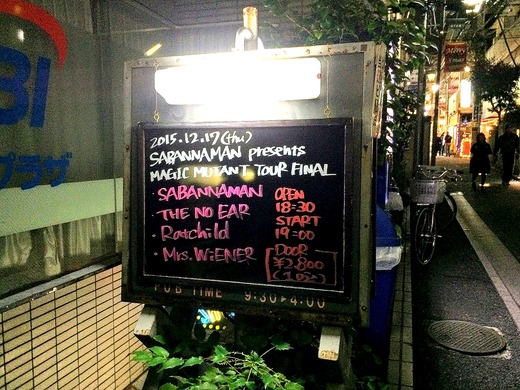 2015.12.17(thu)
SABANNAMAN presents
MAGIC MUTANT TOUR FINAL
SABANNAMAN
・THE NO EAR
・Ratchild
・Mrs. WiENER
OPEN
18:30
START
19:00
DOOR
¥2,800
PUB TIME 9:30▸4:00
BI
プラザ
Merry
Xmas